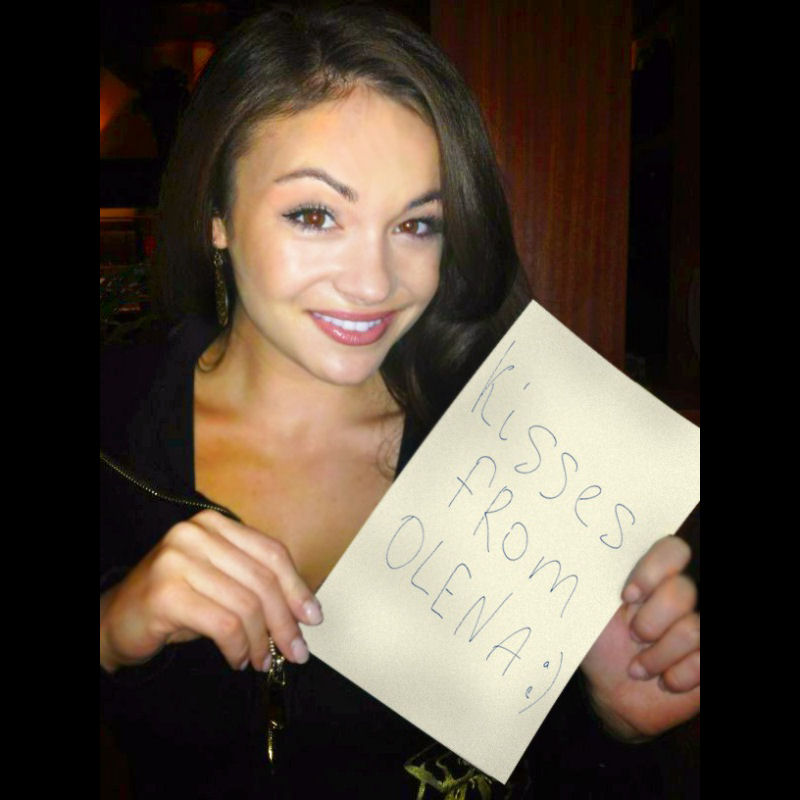 Kisses
fROm
OLENA:)